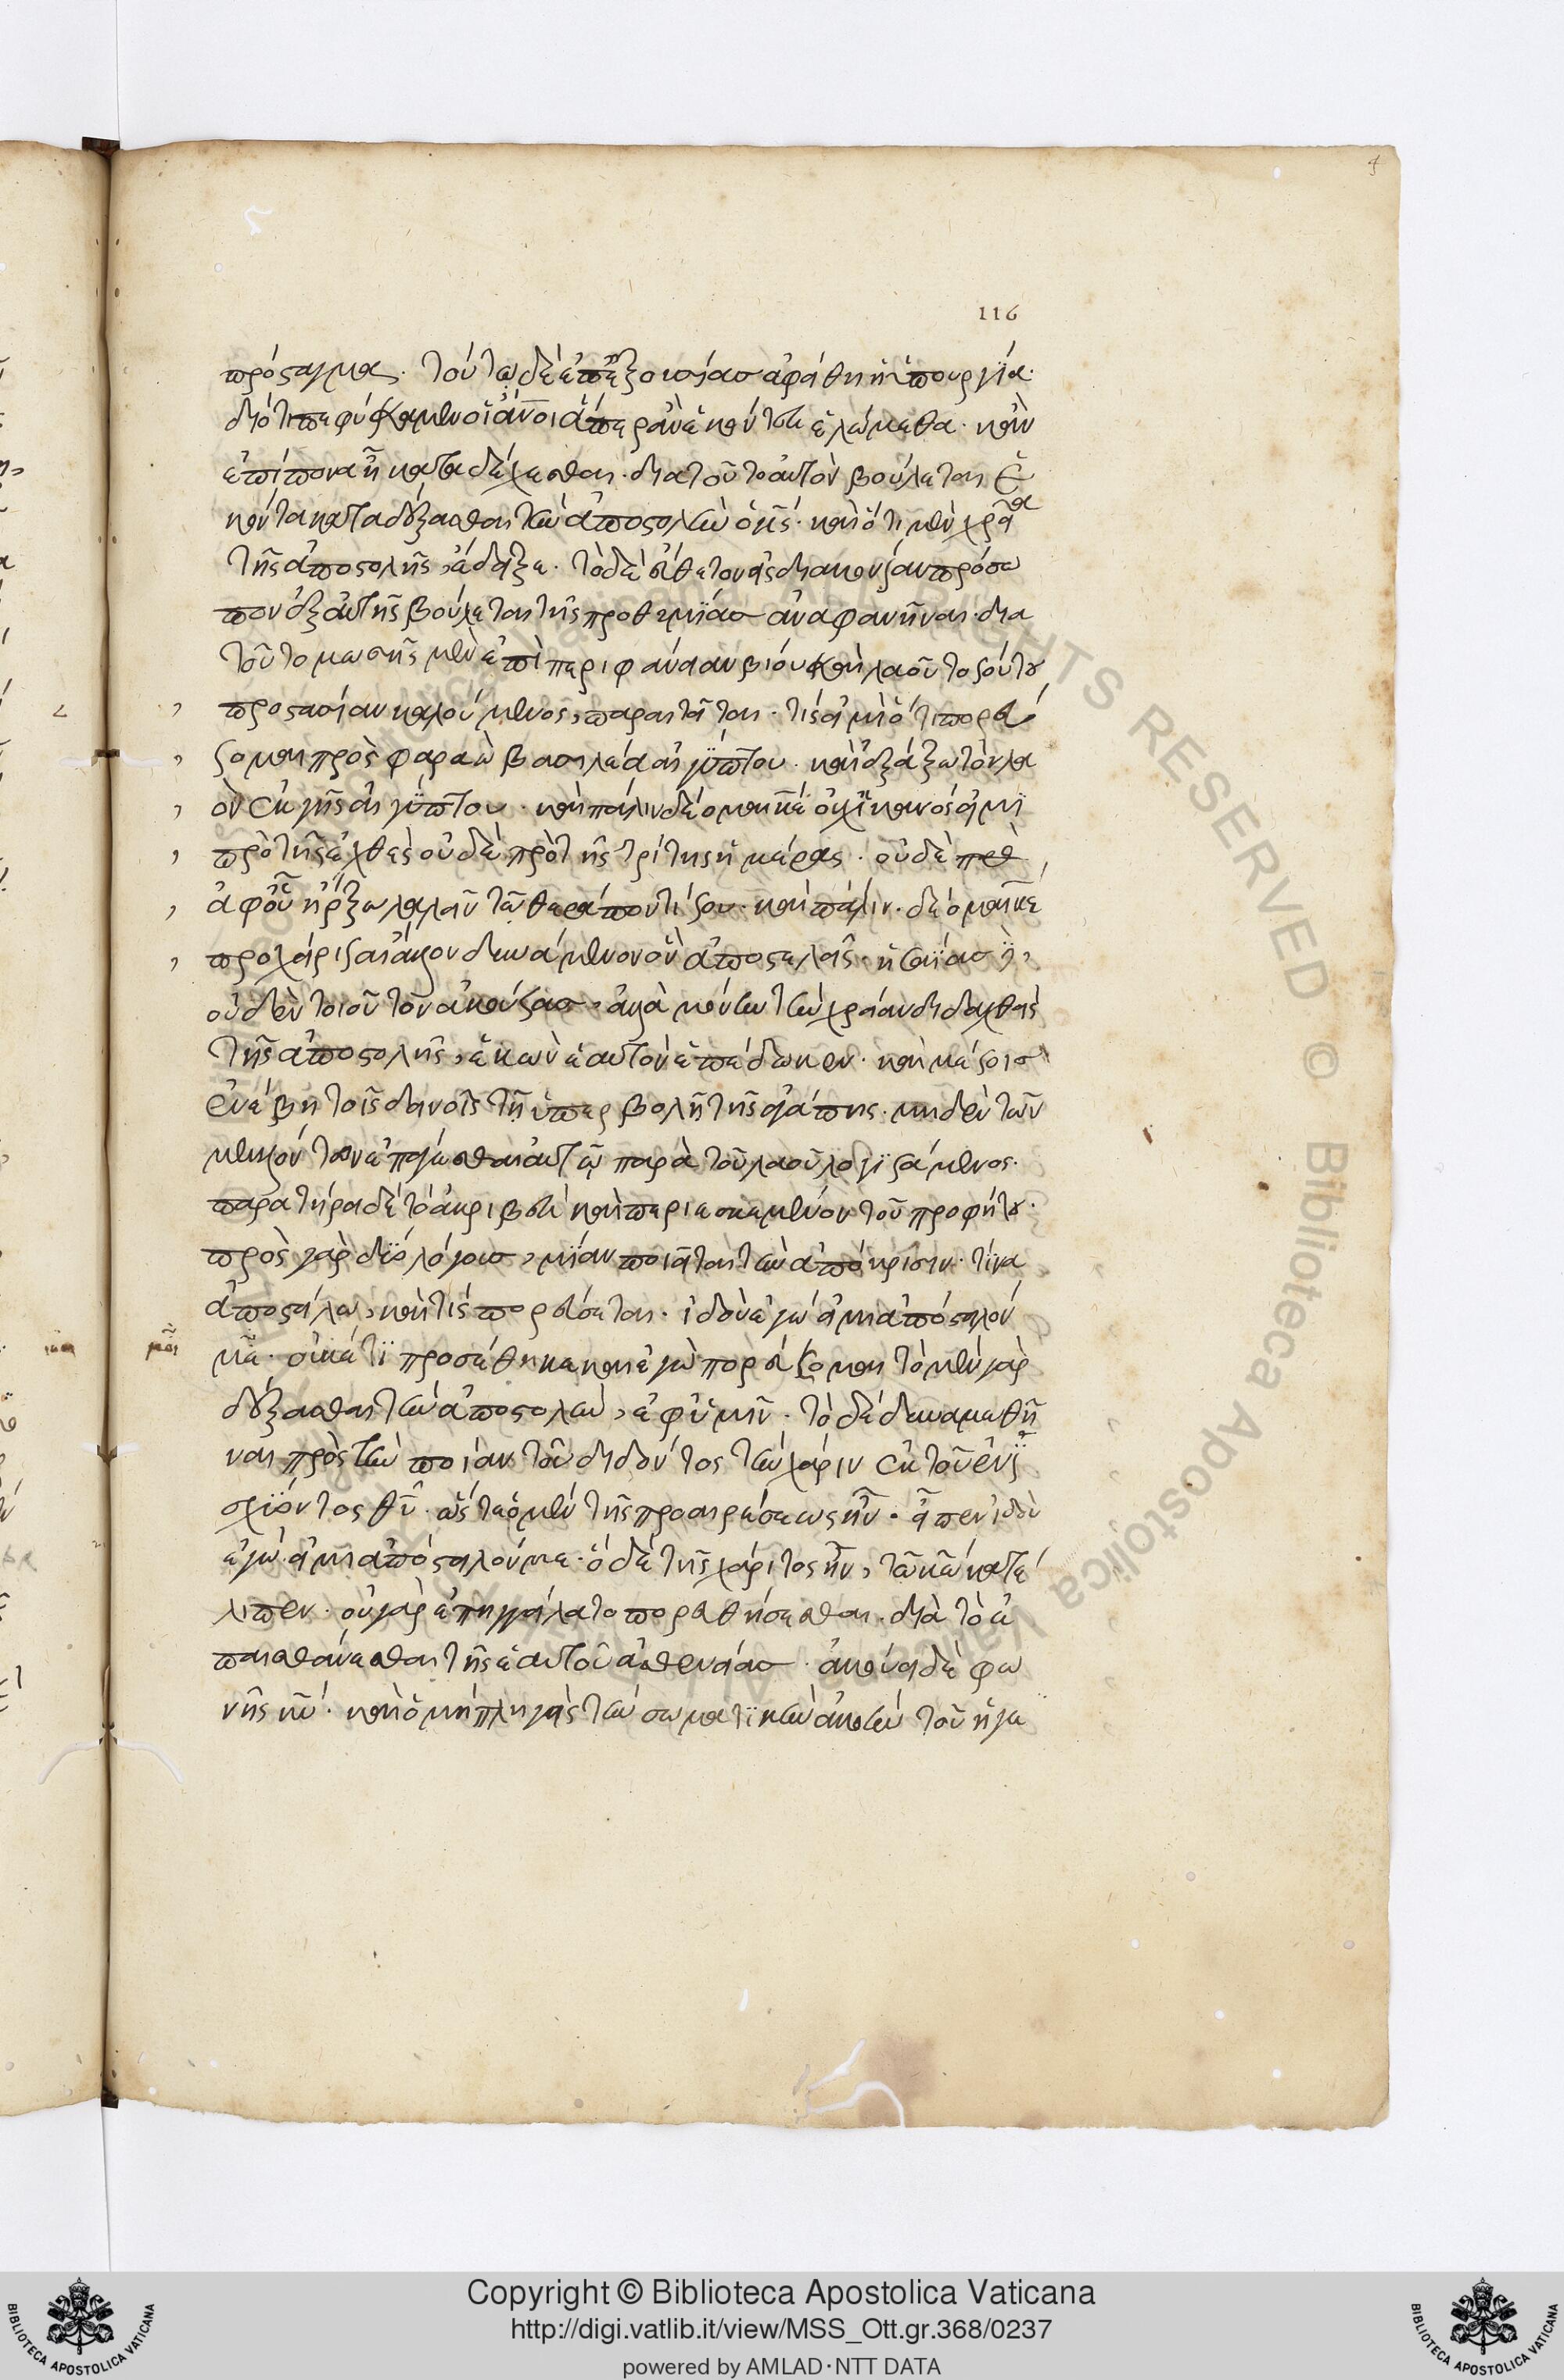 116
πρόσταγμα. τούτω δὲ ἐπεξουσίας ἀφείθη ἡ ὑπουργία.
διότι πεφύκαμεν οἱ ἄνοι ἅπερ ἂν ἑκόντες ἑλώμεθα. κἂν
ἐπίπονα ἦ καταδέχεσθαι. διατοῦτο αὐτὸν βούλεται ἑ
κόντα καταδέξασθαι τὴν ἀποστολὴν ὁ κς. καὶ ὅτι μὲν χρεία
τῆς ἀποστολῆς, ἔδειξε. τὸ δὲ εὔθετον εἰς διακονίαν πρόσω
πον ἐξ αὐτῆς βούλεται τῆς προθυμίας ἀναφανῆναι. δια
τοῦτο μωσῆς μὲν ἐπὶ περιφάνειαν βίου καὶ λαοῦ τοσούτου
προστασίαν καλούμενος, παραιτεῖται. τίς εἰμὶ ὅτι πορεύ
σομαι πρὸς φαραὼ βασιλέα αἰγύπτου. καὶ ἐξάξω τὸν λα
ὸν ἐκ γῆς αἰγύπτου. καὶ πάλιν δέομαι κέ οὐχ ἱκανός εἰμϊ
πρὸ τῆς ἐχθὲς οὐδὲ πρὸ τῆς τρίτης ἡμέρας. οὐδὲ πρὸ
ἀφοῦ ἤρξω λαλεῖν τῶ θεράποντί σου. καὶ πάλιν. δέομαι κέ
προχείρισαι ἄλλον δυνάμενον ὃν ἀποστελεῖς. ἡσαΐας δὲ
οὐδὲν τοιοῦτον ἀκούσας, ἀλλὰ μόνην τὴν χρείαν διδαχθεὶς
τῆς ἀποστολῆς, ἑκὼν ἑαυτὸν ἐπέδωκεν. καὶ μέσοις
ἐνέβη τοῖς δεινοῖς τῆ ὑπερβολῆ τῆς ἀγάπης. μηδὲν τῶν
μελλόντων ἐπάγεσθαι αὐτῶ παρὰ τοῦ λαοῦ λογϊσάμενος.
παρατήρει δὲ τὸ ἀκριβὲς καὶ περιεσκεμμένον τοῦ προφήτου.
πρὸς γὰρ δύο λόγους, μίαν ποιεῖται τὴν ἀπόκρισιν. τίνα
ἀποστείλω, καὶ τίς πορεύσεται. ἰδοὺ ἐγώ εἰμι ἀπόστειλόν
με. οὐκέτϊ προσέθηκε καὶ ἐγὼ πορεύσομαι τὸ μὲν γὰρ
δέξασθαι τὴν ἀποστολὴν, ἐφ ὑμῖν. τὸ δὲ δυναμωθῆ
ναι πρὸς τὴν πορείαν τοῦ διδόντος τὴν χάριν ἐκ τοῦ ἐνϊ
σχύοντος θυ. ὥστε ὁ μὲν τῆς προαιρέσεως ἦν. εἶπεν ἰδοὺ
ἐγώ εἰμι ἀπόστειλόν με. ὃ δὲ τῆς χάριτος ἦν, τῶ κῶ κατέ
λιπεν. οὐ γὰρ ἐπηγγείλατο πορευθήσεσθαι. διὰ τὸ ἐ
παισθάνεσθαι τῆς ἑαυτοῦ ἀσθενείας. ἀκούει δὲ φω
νῆς κυ. καὶ ὁ μὴ πληγεὶς τὴν σωματϊκὴν ἀκοὴν τοῦ ἡγε
Copyright © Biblioteca Apostolica Vaticana
http://digi.vatlib.it/view/MSS_Ott.gr.368/0237
powered by AMLAD·NTT DATA